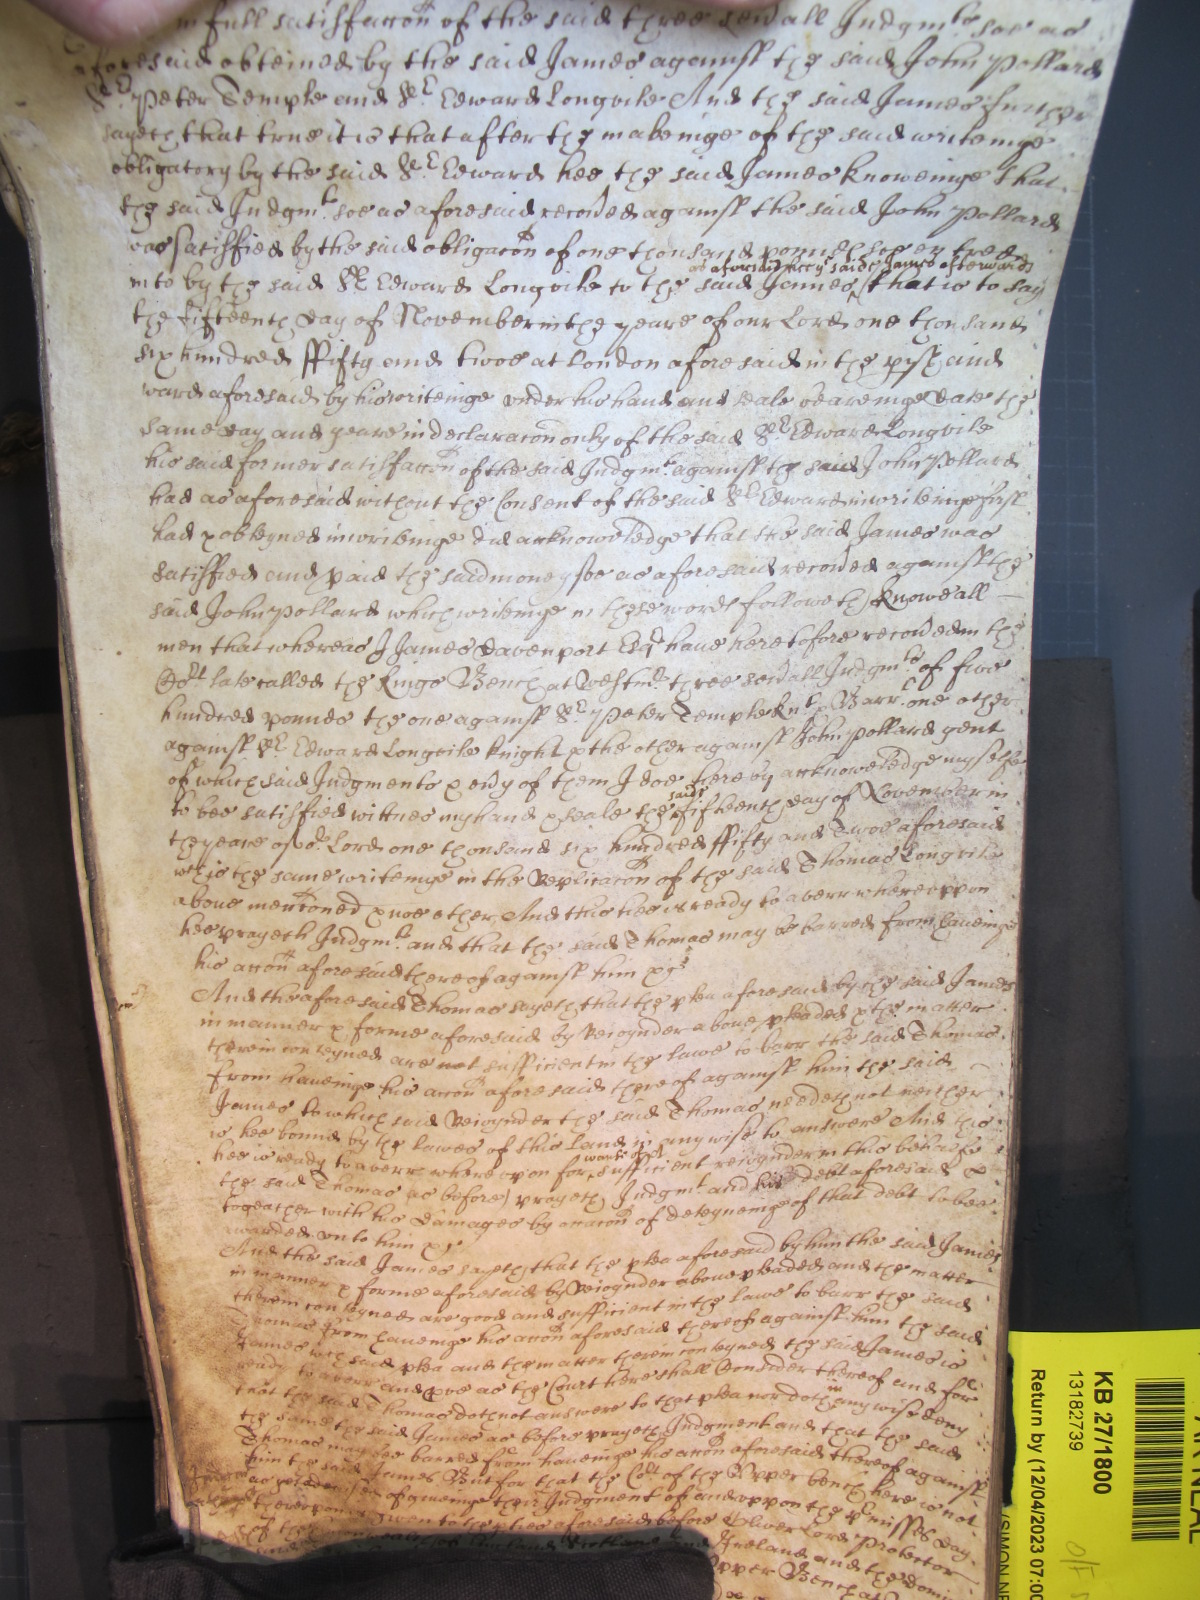 in full satisfaccon of the said three sevall Judgmts soe as
aforesaid obteined by the said James against the said John Pollard
Sr Peter Temple and Sr Edward Longvile And the said James further
sayeth that true it is that after the makeinge of the said writeinge
obligatory by the said Sr Edward hee the said James knoweinge that
the said Judgmt soe as aforesaid recoved against the said John Pollard
was satisfied by the said obligacon of one thousand pounds soe entred
as aforesaid hee the said James afterwards
into by the said Sr Edward Longvile to the said James that is to say
the fifteenth day of November in the yeare of our Lord one thousand
six hundred ffifty and twoe at London aforesaid in the pish and
ward aforesaid by his writeinge under his hand and seale beareinge date the
same day and yeare in declaracon only of the said Sr Edward Longvile
his said former satisfaccon of the said Judgmt against the said John Pollard
had as aforesaid without the Consent of the said Sr Edward in writeinge first
had & obteyned in writeinge did acknowledge that the said James was
satisfied and paid the said money soe as aforesaid recoved against the
said John Pollard which writeinge in these words followeth) Knowe all
men that whereas I James Davenport Esqr have heretofore recoved in the
Cort late called the Kings Bench at Westmr three sevall Judgmts of five
hundred pounds the one against Sr Peter Temple Knt & Barrt one other
against Sr Edward Longvile knight & the other against John Pollard gent
of which said Judgments & evy of them I doe hereby acknowledge myselfe
said
to bee satisfied wittnes my hand & seale the fifteenth day of November in
the yeare of or Lord one thousand six hundred ffifty and Twoe aforesaid
wch is the same writeinge in the Replicacon of the said Thomas Longvile
above mencioned & noe other And this hee is ready to averr whereuppon
hee prayeth Judgmt and that the said Thomas may be barred from haveinge
his accon aforesaid thereof against him &c
And the aforesaid Thomas sayeth that the plea aforesaid by the said James
in manner & forme aforesaid by Rejoynder above pleaded & the matter
therein conteyned are not sufficient in the lawe to barr the said Thomas
from haveinge his accon aforesaid thereof against him the said
James to which said Rejoynder the said Thomas needeth not neither
is hee bound by the lawes of this Land in any wise to answere And this
want of a
hee is ready to averr whereupon for sufficient rejoynder in this behalfe
the said Thomas as before) prayeth Judgmt and his debt aforesaid
togeather with his damages by occacon of deteyneinge of that debt to bee
awarded unto him &c
And the said James sayeth that the plea aforesaid by him the said James
in manner & forme aforesaid by Rejoynder above pleaded and the matter
therein conteyned are good and sufficient in the lawe to barr the said
Thomas from haveinge his accon aforesaid thereof against him the said
James wch said plea and the matter therein conteyned the said James is
ready to averr and prove as the Court here shall Consider thereof and for
that the said Thomas doth not answere to that plea nor doth in any wise deny
the same the said James as before prayeth Judgment and that the said
Thomas may bee barred from haveinge his accon aforesaid thereof against
him the said James But for that the Cort of the Upper bench here is not
as yet of giveinge their Judgment of and uppon the pmisses day
thereuppon is given to the pties aforesaid before Oliver Lord Protector
of the Scotland and Ireland and the Domi
Upper Bench at
KB 27/1800
13182739
Return by (12/04/2023 07:00